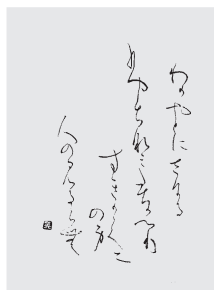 わかやとにさける
ふちなみたちかへり
すきかてに
のみ
人のみるらむ